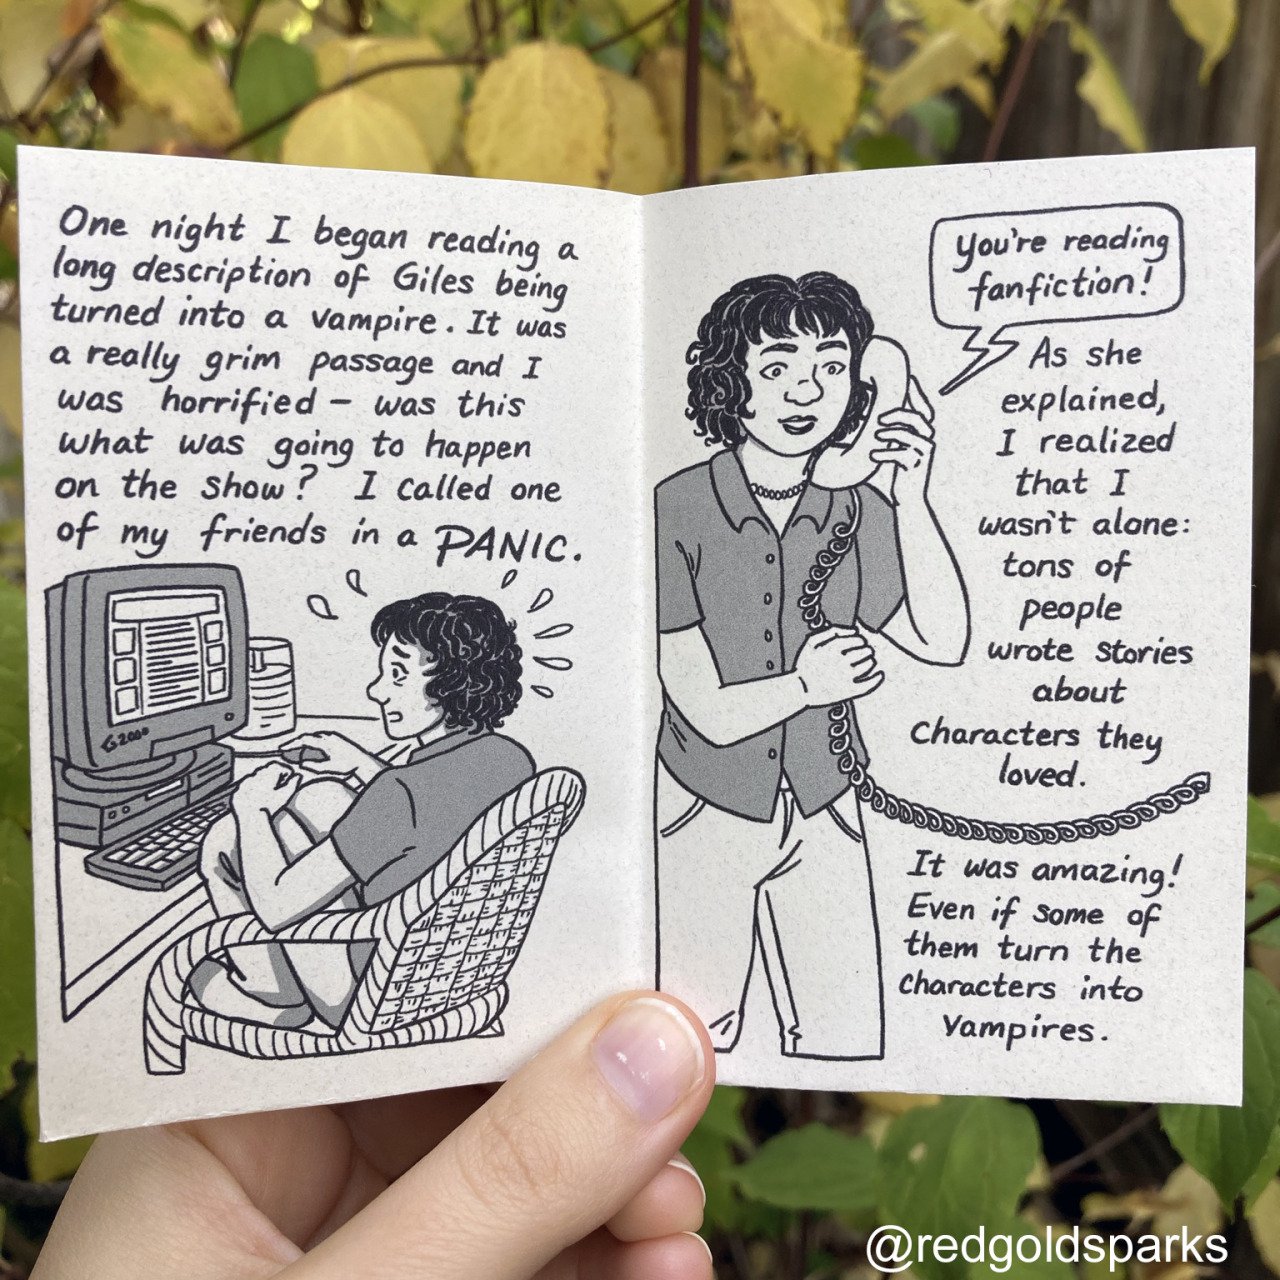 One night I began reading a
long description of Giles being
turned into a vampire. It was
a really grim passage and I
was horrified – was this
what was going to happen
on the show? I called one
of my friends in a PANIC.
G2000
You're reading
fanfiction!
As she
explained,
I realized
that I
wasn't alone:
tons of
people
wrote stories
about
Characters they
loved.
It was amazing!
Even if some of
them turn the
characters into
vampires.
@redgoldsparks